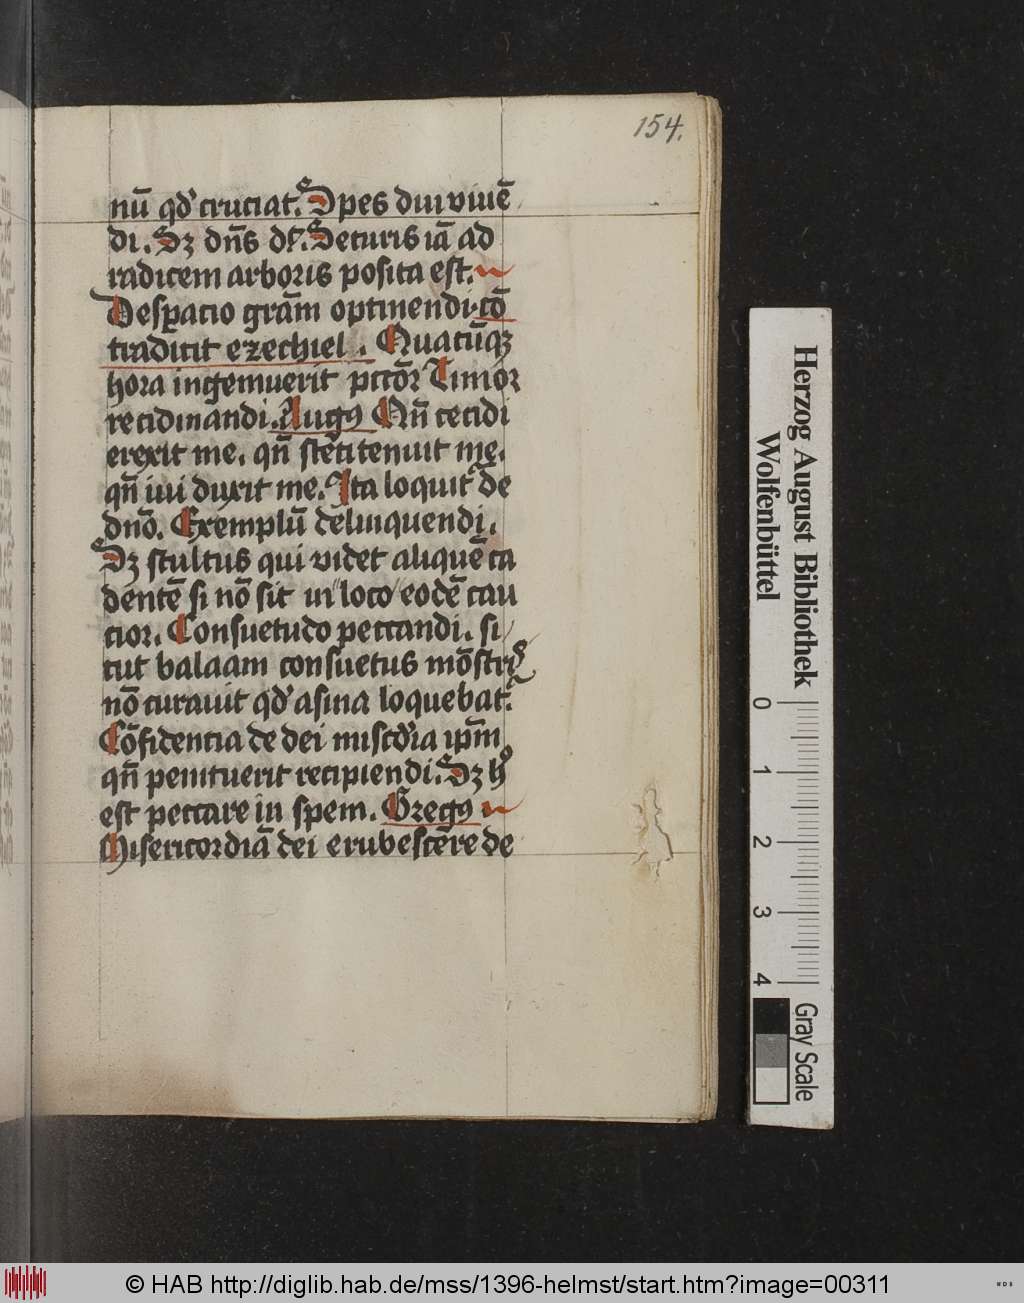 154.
nū qd' cruciat᷑. Spes diu viuē
di. Sz dn̄s dt. Securis iā ad
radicem arboris posita est.
Desp̱acio gr̄am optinendi. cō
tradicit ezechiel. Quacūqꝫ
hora ingemuerit pctōr Timor
recidiuandi. Augꝰ Qn̄ cecidi
erexit me. qn̄ steti tenuit me.
qn̄ iui duxit me. Ita loquit᷑ de
dnō. Exemplū delinquendi.
Sz stultus qui videt aliquē ca
dentē si nō sit in loco eodē cau
cior. Consuetudo peccandi. si
cut balaam consuetus mōstris
nō curauit qd' asina loquebat᷑.
Cōfidencia de dei misc̄dia ip̄m
qn̄ penituerit recipiendi. Sz hº
est peccare in spem. Gregꝰ
Misericordiā dei erubescēre de
Herzog August Bibliothek
Wolfenbüttel
0 1 2 3 4
Gray Scale
© HAB http://diglib.hab.de/mss/1396-helmst/start.htm?image=00311